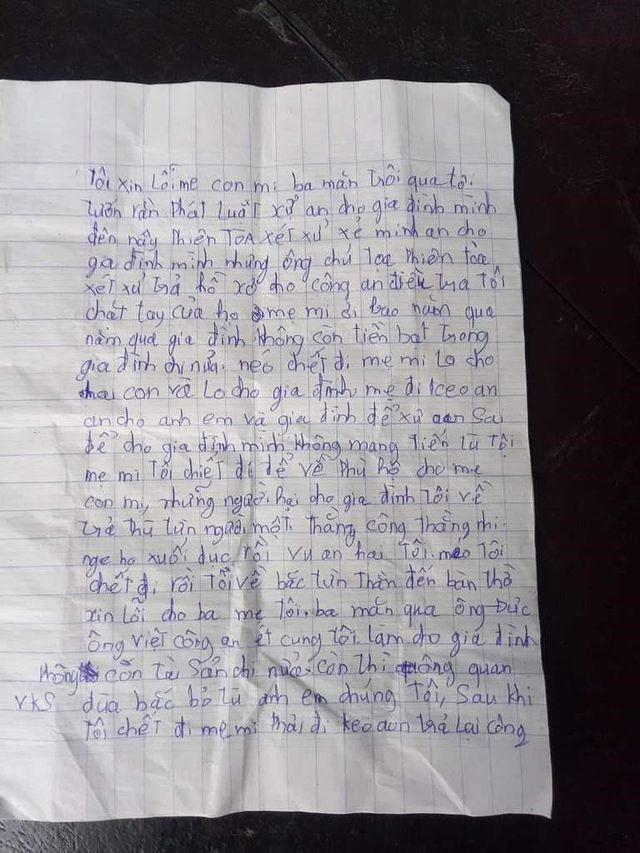 Tôi xin lối mẹ con mi ba măn trôi qua tôi.
luôn rằn Phát luật xử an cho gia đình mình
đến nấy Phiên Tòa xét xử xẻ minh an cho
gia đình minh nhưng ông chủ tọa Phiên tòa
xét xử trả hồ xơ cho công an điều tra tôi
chặt tay của họ mẹ mi đi bao năm qua
năm qua gia đình không còn tiền bạt trong
gia đình chi nửa. nếo chết đi mẹ mi lo cho
hai con và lo cho gia đình, mẹ đi keo an
an cho anh em và gia đình để xử oan Sai
để cho gia đinh mình không mang tiến tù tội
mẹ mi tôi chiết đi để về Phụ hồ cho mẹ
con mi, nhưng người hại cho gia đình tôi về
trả thù từn người một, thằng công thằng nhi
nge họ xuối dục rồi vu an hai tôi. nếo tôi
chết đi rồi tôi về bắc từn thằn đến bàn thờ
xin lỗi cho ba mẹ tôi. ba măn qua ông Đức
ông việt công an ét cung tôi làm cho gia đình
không còn tài sản chi nửa. còn thì ông quan
VKS dừa bắc bỏ tù anh em chúng tôi, Sau khi
tôi chết đi mẹ mi thải đi keo aon trả lại công